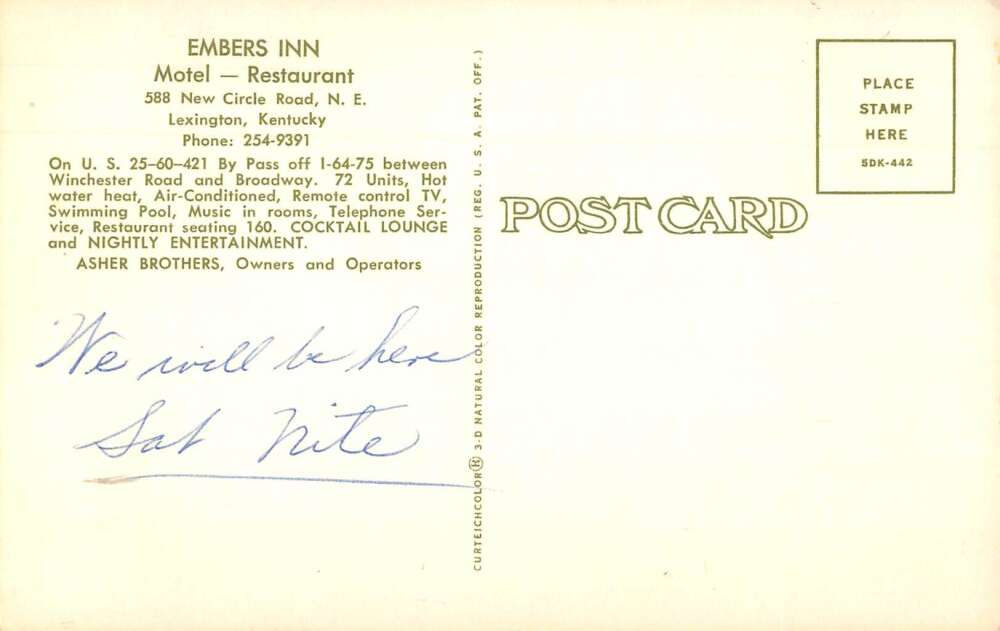 EMBERS INN
Motel — Restaurant
588 New Circle Road, N. E.
Lexington, Kentucky
Phone: 254-9391
On U. S. 25–60–421 By Pass off I-64-75 between
Winchester Road and Broadway. 72 Units, Hot
water heat, Air-Conditioned, Remote control TV,
Swimming Pool, Music in rooms, Telephone Ser-
vice, Restaurant seating 160. COCKTAIL LOUNGE
and NIGHTLY ENTERTAINMENT.
ASHER BROTHERS, Owners and Operators
We will be here
Sat Nite
CURTEICHCOLOR® 3-D NATURAL COLOR REPRODUCTION (REG. U. S. A. PAT. OFF.)
POST CARD
PLACE
STAMP
HERE
5DK-442